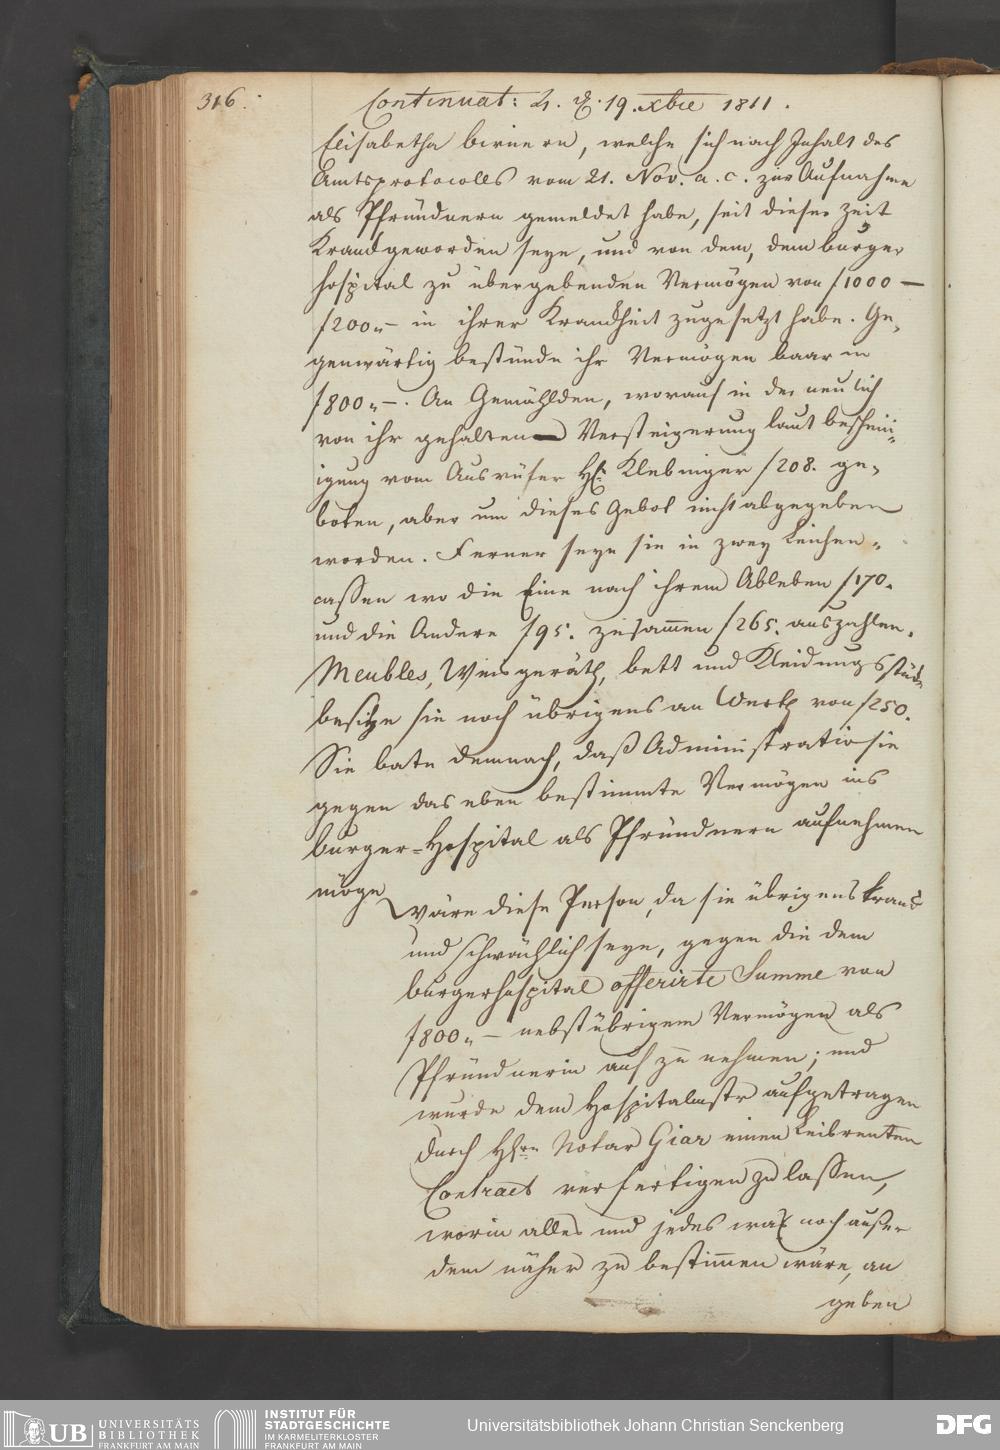 316.
Continuat: ♃. d. 19. xbre 1811.
Elisabetha Birnern, welche sich nach Inhalt des
Amtsprotocolls vom 21. Nov. a. c. zur Aufnahme
als Pfründnern gemeldet habe, seit dieser Zeit
Krank geworden seye, und von dem, dem burger
hospital zu übergebenden Vermögen von f1000 —
f200„– in ihrer Krankheit zugesetzt habe. Ge„
genwärtig bestünde ihr Vermögen baar in
f800„–. An Gemählden, worauf in der neulich
von ihr gehaltenen Versteigerung laut beschein„
igung vom Ausrüfer H. Klebinger f208. ge„
boten, aber um dieses Gebot nicht abgegeben
worden. Ferner seye sie in zwey Leichen„
cassen wo die Eine nach ihrem Ableben f170.
und die Andere f95. zusam̅en f265. auszahlen.
Meubles, Weisgeräth, bett und Kleidungsstück
besitze sie noch übrigens an Werth von f250.
Sie bate demnach, daß Administratio sie
gegen das eben bestimmte Vermögen ins
burger-Hospital als Pfründnern aufnehmen
möge
Wäre diese Person, da sie übrigens krank
und schwächlich seye, gegen die dem
burgerhospital offerirte Summe von
f800„– nebst übrigem Vermögen als
Pfründnerin auf zu nehmen; und
wurde dem Hospitalmstr aufgetragen
durch Hhrn Notar Giar einen Leibrenten
Contract verfertigen zu lassen,
worin alles und jedes was noch ausser
dem näher zu bestim̅en wäre, an
geben
UB UNIVERSITÄTS
BIBLIOTHEK
FRANKFURT AM MAIN
INSTITUT FÜR
STADTGESCHICHTE
IM KARMELITERKLOSTER
FRANKFURT AM MAIN
Universitätsbibliothek Johann Christian Senckenberg
DFG